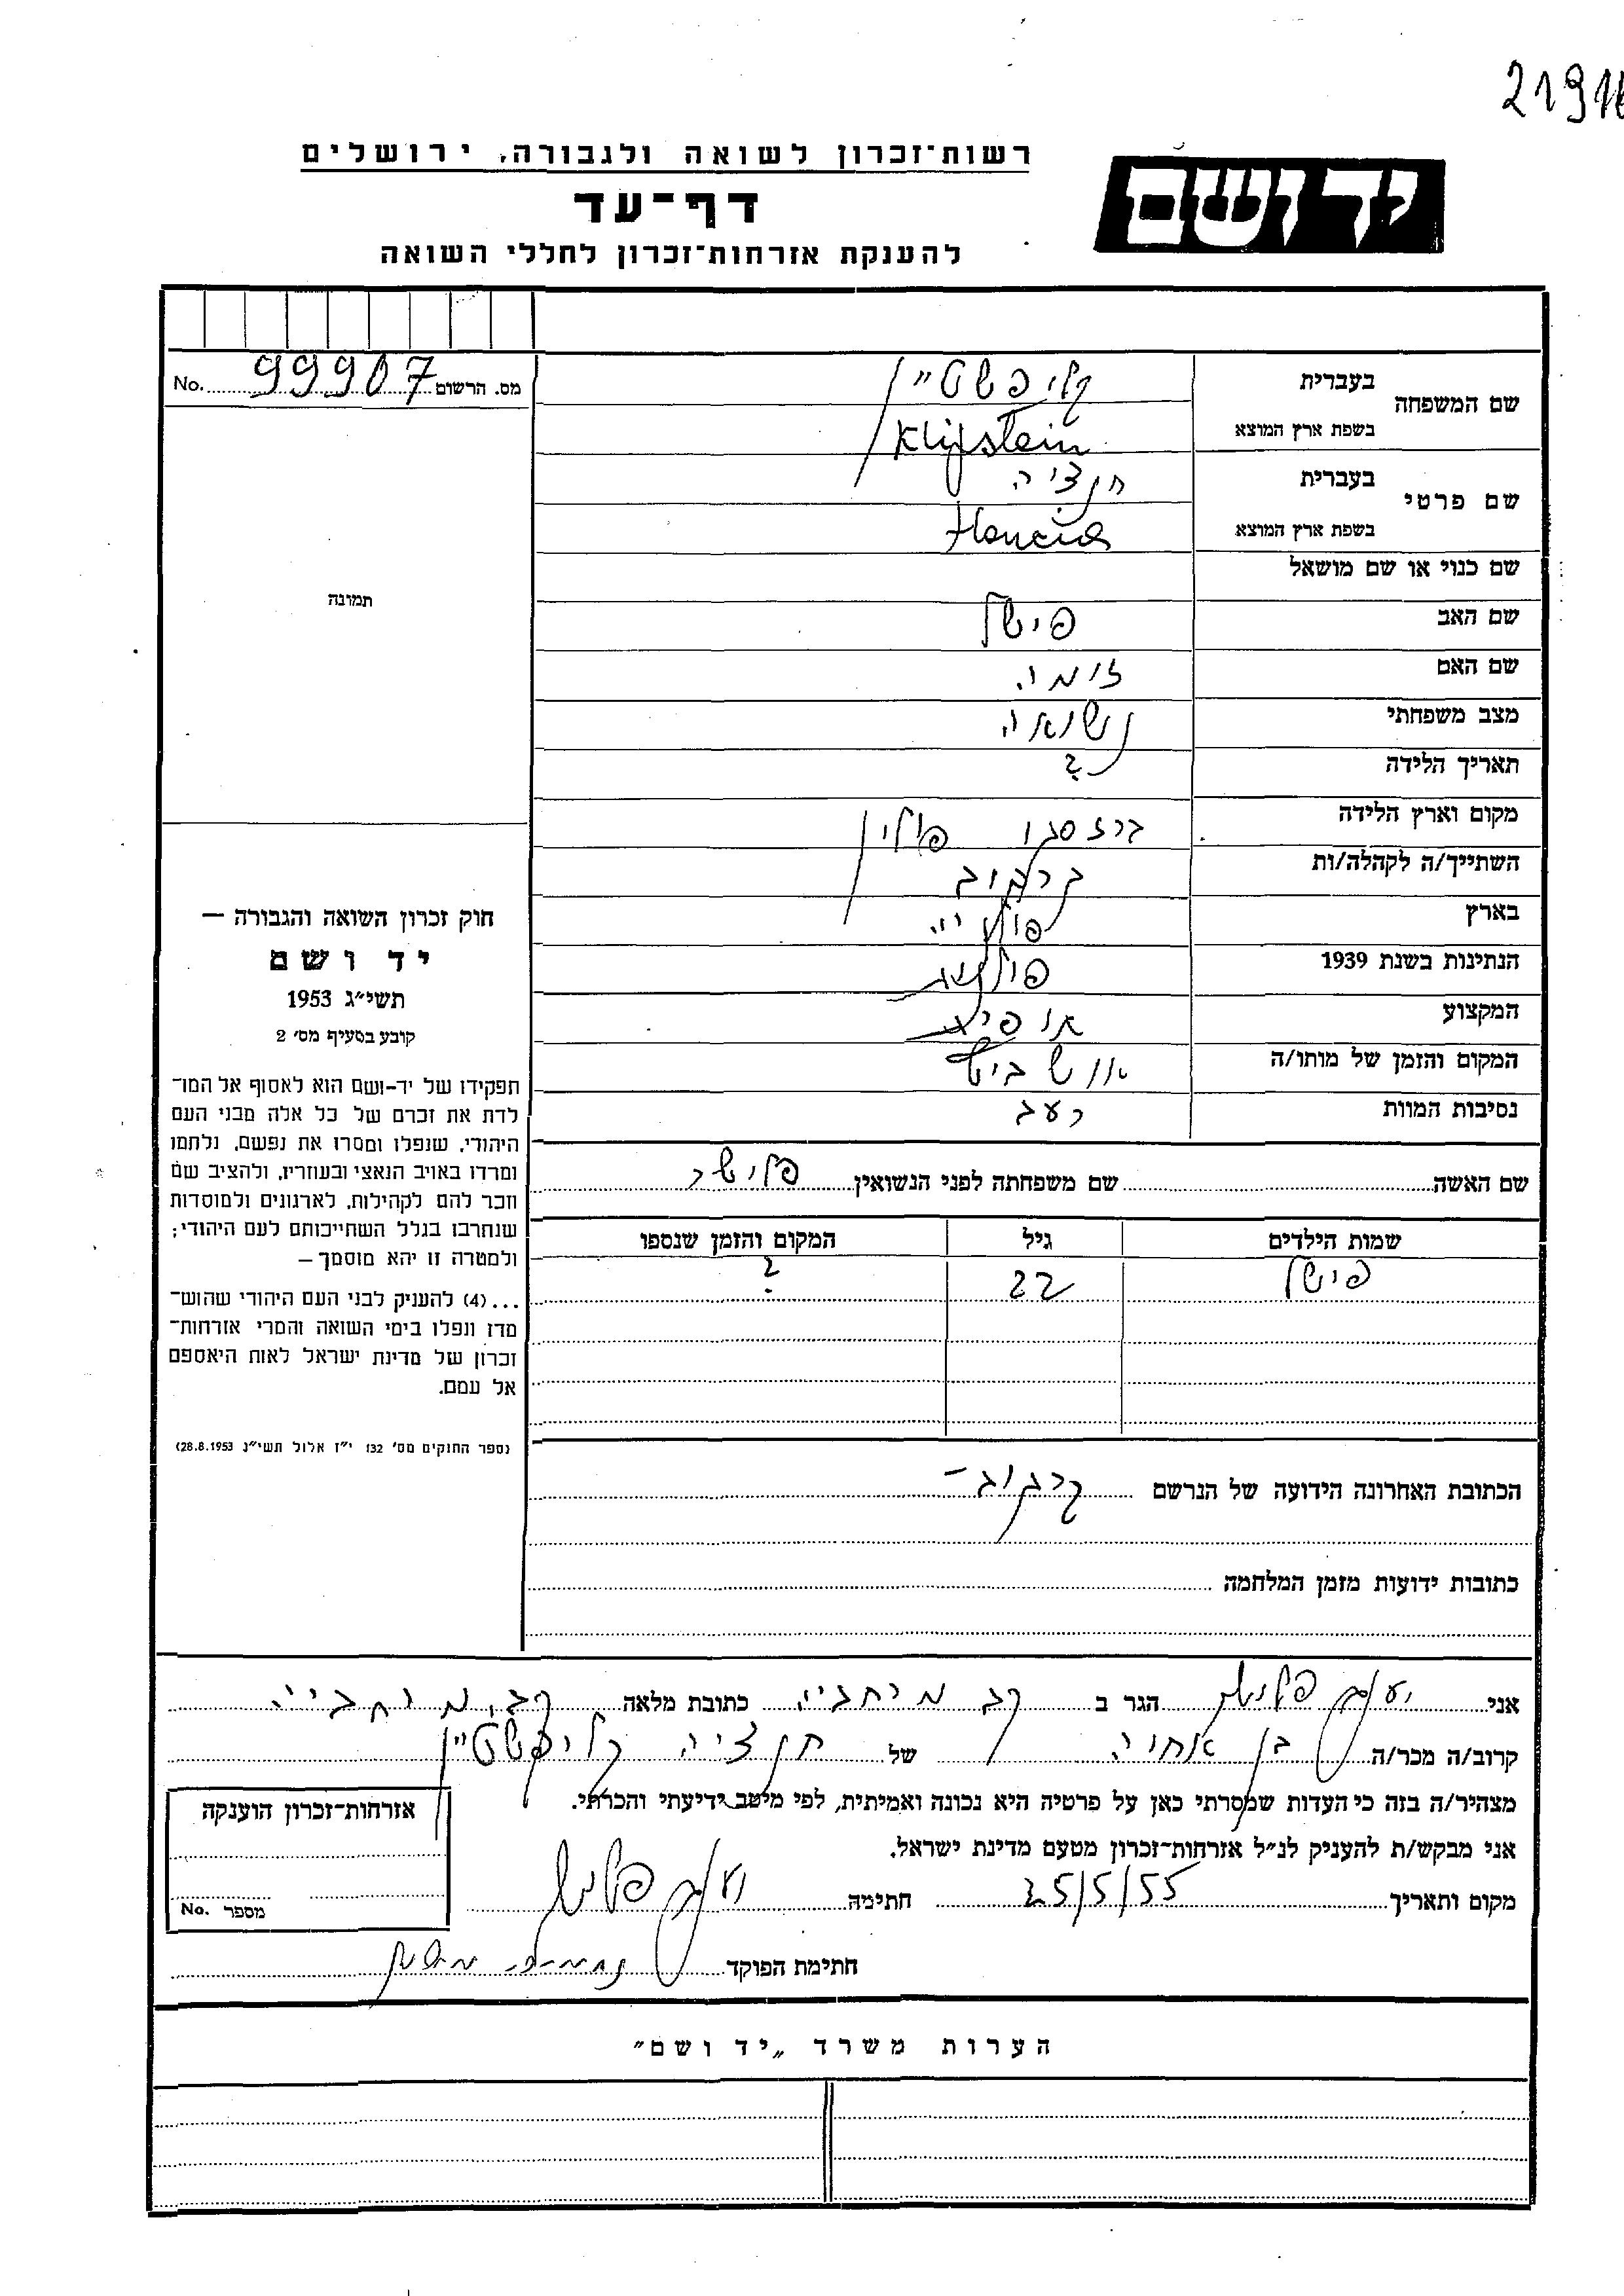 21911
רשות־זכרון לשואה ולגבורה, ירושלים
יד ושם
דף־עד
להענקת אזרחות־זכרון לחללי השואה
מס. הרשום 99907 No.
שם המשפחה בעברית קליפשטיין
בשפת ארץ המוצא Klipstein
שם פרטי בעברית חנציה
בשפת ארץ המוצא Hancia
שם כנוי או שם מושאל
שם האב פישל
שם האם
מצב משפחתי נשואה
תאריך הלידה ?
מקום וארץ הלידה פולין
השתייך/ה לקהלה/ות קרקוב
בארץ פולין
הנתינות בשנת 1939 פולנית
המקצוע
המקום והזמן של מותו/ה אושביץ
נסיבות המוות רעב
תמונה
חוק זכרון השואה והגבורה —
יד ושם
תשי״ג 1953
קובע בסעיף מס׳ 2
תפקידו של יד-ושם הוא לאסוף אל המו־
לדת את זכרם של כל אלה מבני העם
היהודי, שנפלו ומסרו את נפשם, נלחמו
ומרדו באויב הנאצי ובעוזריו, ולהציב שם
וזכר להם לקהילות, לארגונים ולמוסדות
שנחרבו בגלל השתייכותם לעם היהודי;
ולמטרה זו יהא מוסמך —
...(4) להעניק לבני העם היהודי שהוש־
מדו ונפלו בימי השואה והמרי אזרחות־
זכרון של מדינת ישראל לאות היאספם
אל עמם.
(ספר החוקים מס׳ 132 י״ז אלול תשי״ג 28.8.1953)
שם האשה שם משפחתה לפני הנשואין פלישר
שמות הילדים גיל המקום והזמן שנספו
פישל 22 ?
הכתובת האחרונה הידועה של הנרשם קרקוב -
כתובות ידועות מזמן המלחמה
אני יעקב הגר ב קב מרחביה כתובת מלאה קב. מרחביה
קרוב/ה מכר/ה בן אחיה של חנציה קליפשטיין
מצהיר/ה בזה כי העדות שמסרתי כאן על פרטיה היא נכונה ואמיתית, לפי מיטב ידיעתי והכרתי.
אני מבקש/ת להעניק לנ״ל אזרחות־זכרון מטעם מדינת ישראל.
מקום ותאריך 25/5/55 חתימה יעקב
חתימת הפוקד
אזרחות־זכרון הוענקה
מספר No.
הערות משרד „יד ושם״